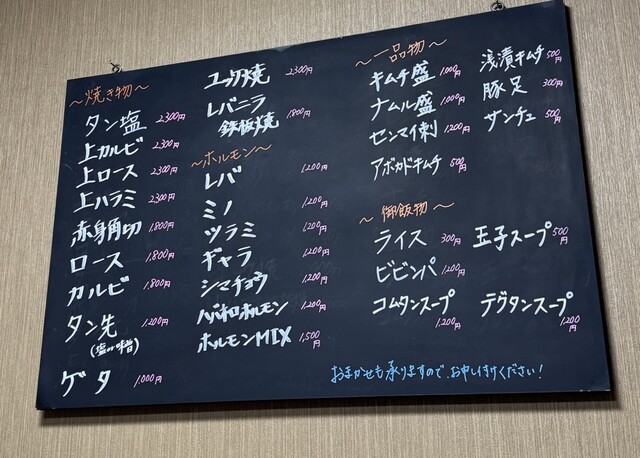 ～焼き物～
タン塩 2,300円
上カルビ 2,300円
上ロース 2,300円
上ハラミ 2,300円
赤身角切 1,800円
ロース 1,800円
カルビ 1,800円
タン先 1,200円
(塩or味噌)
ゲタ 1,000円
ユッケ焼 2,300円
レバニラ
鉄板焼 1,800円
～ホルモン～
レバ 1,200円
ミノ 1,200円
ツラミ 1,200円
ギャラ 1,200円
シマチョウ 1,200円
ホルモン 1,200円
ホルモンMIX 1,500円
～一品物～
キムチ盛 1,000円
ナムル盛 1,000円
センマイ刺 1,200円
アボカドキムチ 500円
浅漬キムチ 500円
豚足 300円
サンチュ 500円
～御飯物～
ライス 300円
ビビンパ 1,200円
コムタンスープ
1,200円
玉子スープ 500円
テグタンスープ
1,200円
おまかせも承りますので、お申し付けください！